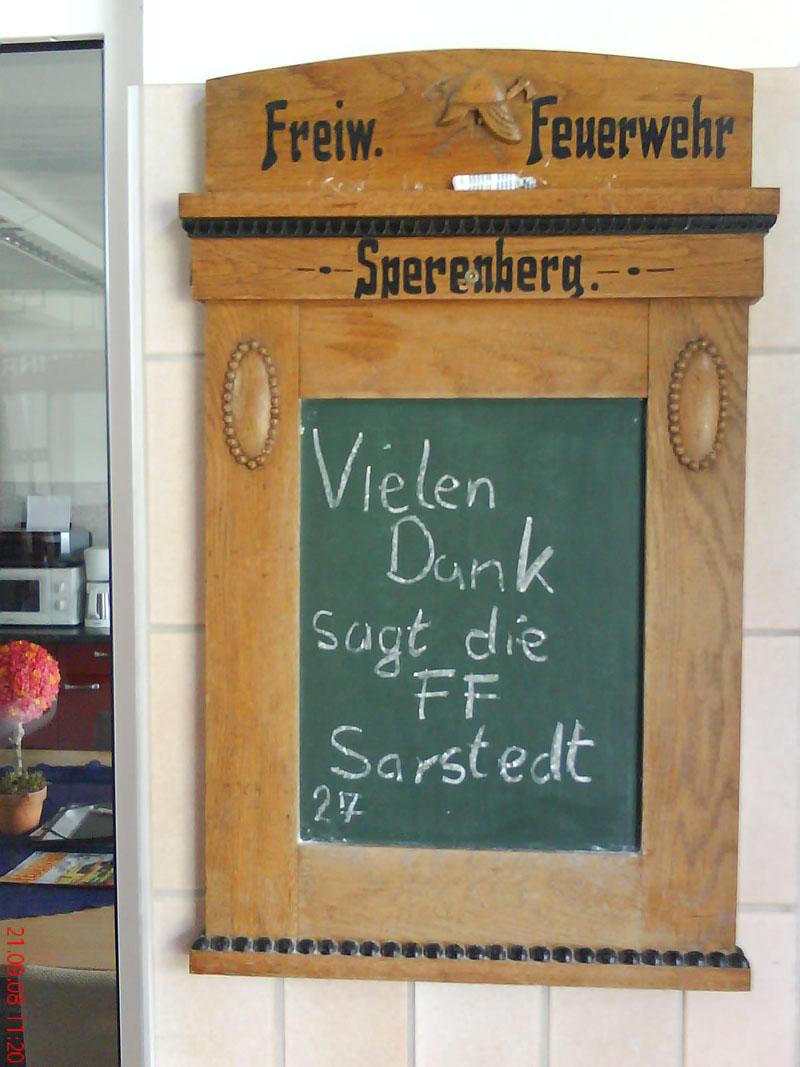 Freiw. Feuerwehr
Sperenberg.
Vielen
Dank
sagt die
FF
Sarstedt
27
21.09.08 11:20